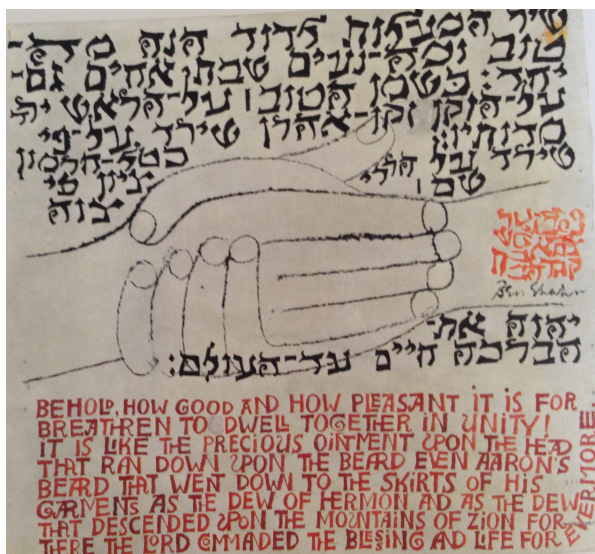 שיר המעלות לדוד הנה מה־
טוב ומה־נעים שבת אחים גם־
יחד: כשמן הטוב׀ על־הראש
על־הזקן זקן־אהרן שירד על־פי
מדותיו: כטל־חרמון
שירד על־הררי ציון כי
שם׀ צוה
Ben Shahn
יהוה את־
הברכה חיים עד־העולם:
BEHOLD, HOW GOOD AND HOW PLEASANT iT iS FOR
BREATHREN TO DWELL TOGETHER iN UNiTY!
iT iS LiKE THE PRECiOUS OiNTMENT UPON THE HEAD
THAT RAN DOWN UPON THE BEARD EVEN AARON'S
BEARD THAT WENT DOWN TO THE SKiRTS OF HiS
GARMENTS AS THE DEW OF HERMON AD AS THE DEW
THAT DESCENDED UPON THE MOUNTAiNS OF ZiON FOR
THERE THE LORD COMMADED THE BLESiNG AND LiFE FOR
EVERMORE.